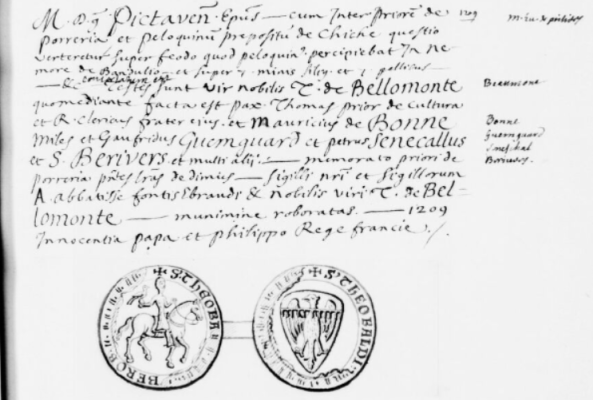 M. D. g. Pictaven. Epus — cum Inter Priorem de
Porreria et Peloquinum prepositum de Chiche questio
verteretur super feodo quod peloquin. percipiebat In ne
more de et super
Testes sunt vir nobilis T. de Bellomonte
quo mediante facta est pax. Thomas prior de Cultura
et R. clericus frater eius. et Mauricius de Bonne
Miles et Gaufridus Guemquard et petrus Senecallus
et S. Berivers et multi alij. — memorato priori de
porreria — sigilli nri et sigillorum
A. abbatisse fontis Ebraudi & nobilis viri T. de Bel-
lomonte — munimine roboratas. — 1209
Innocentio papa et philippo Rege francie
1209
Beaumont
Bonne
Guemquard
Senechal
Berivers
✠ S. THEOBA
BERCH
✠ S. THEOBALDI